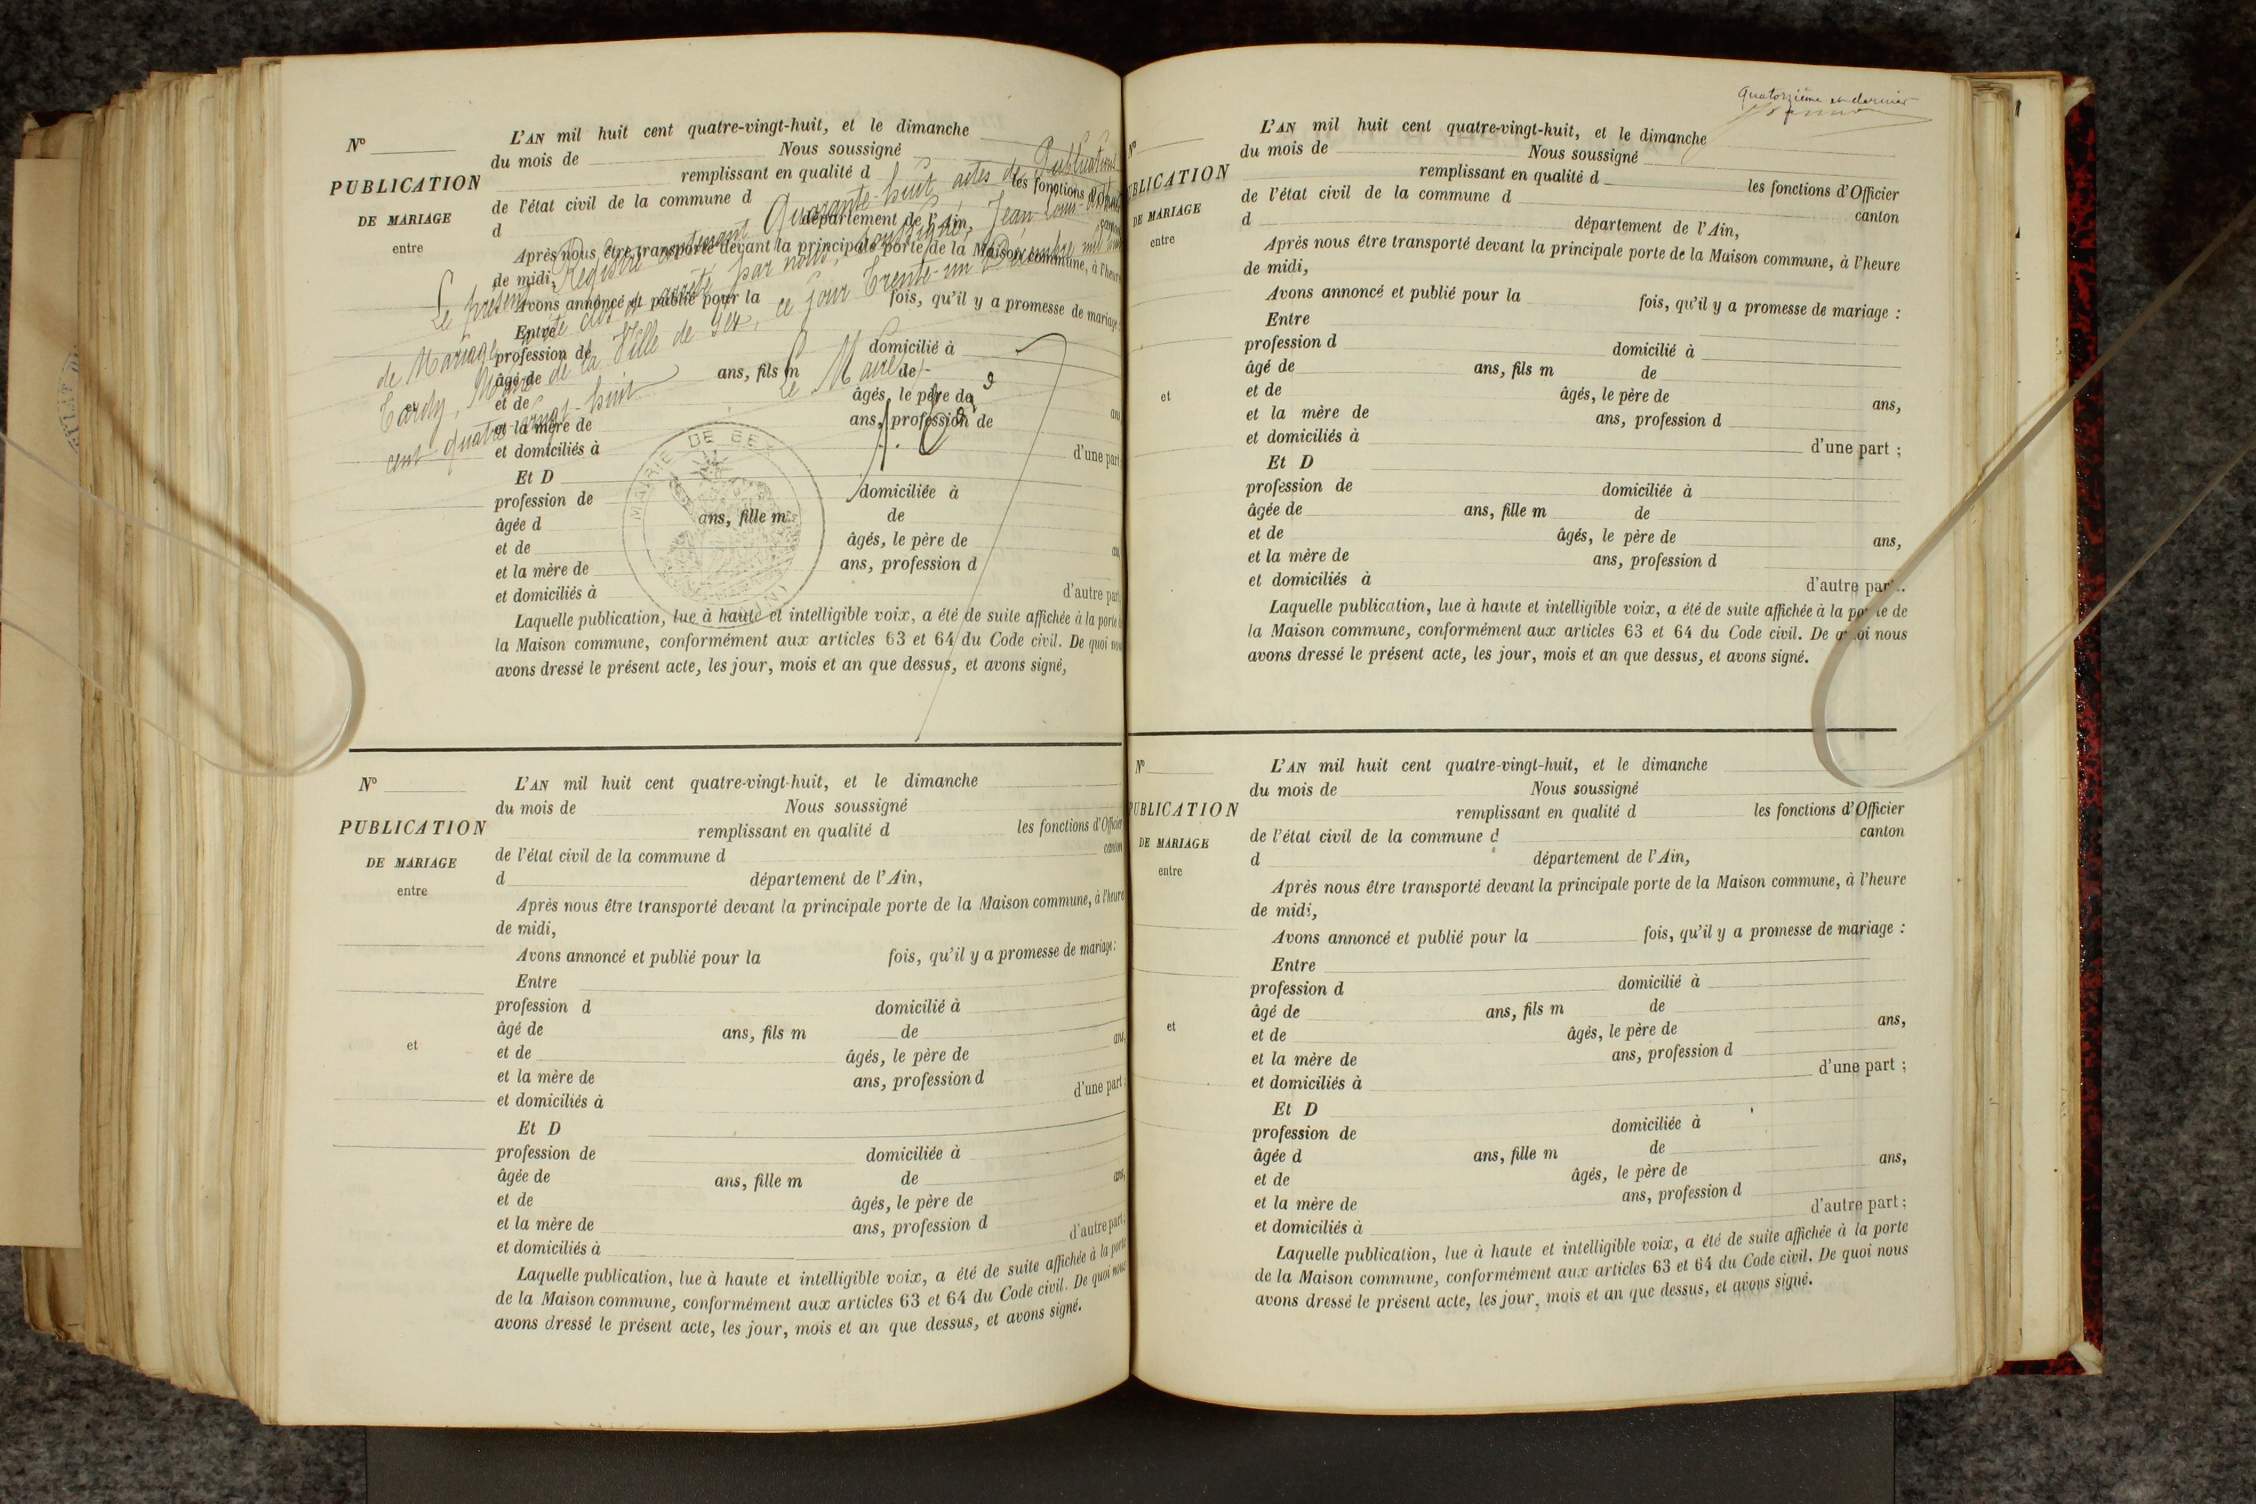 Nº
PUBLICATION
DE MARIAGE
entre
et
L'AN mil huit cent quatre-vingt-huit, et le dimanche
du mois de Nous soussigné
remplissant en qualité d les fonctions d'Officier
de l'état civil de la commune d canton
d département de l'Ain,
Après nous être transporté devant la principale porte de la Maison commune, à l'heure
de midi,
Avons annoncé et publié pour la fois, qu'il y a promesse de mariage :
Entre
profession de domicilié à
âgé de ans, fils m de
et de âgés, le père de ans
et la mère de ans, profession de
et domiciliés à d'une part
Et D
profession de domiciliée à
âgée d ans, fille m de
et de âgés, le père de ans
et la mère de ans, profession d
et domiciliés à d'autre part
Laquelle publication, lue à haute et intelligible voix, a été de suite affichée à la porte de
la Maison commune, conformément aux articles 63 et 64 du Code civil. De quoi nous
avons dressé le présent acte, les jour, mois et an que dessus, et avons signé,
Le présent Registre contenant Quarante-huit actes de Publications
de Mariage, a été clos et arrêté par nous, soussigné, Jean-Louis
Tardy, Maire de la Ville de Gex, ce jour Trente-un Décembre mil huit
cent quatre-vingt-huit
Le Maire,
MAIRIE DE GEX
Nº
PUBLICATION
DE MARIAGE
entre
et
L'AN mil huit cent quatre-vingt-huit, et le dimanche
du mois de Nous soussigné
remplissant en qualité d les fonctions d'Officier
de l'état civil de la commune d canton
d département de l'Ain,
Après nous être transporté devant la principale porte de la Maison commune, à l'heure
de midi,
Avons annoncé et publié pour la fois, qu'il y a promesse de mariage :
Entre
profession d domicilié à
âgé de ans, fils m de
et de âgés, le père de ans,
et la mère de ans, profession d
et domiciliés à d'une part ;
Et D
profession de domiciliée à
âgée de ans, fille m de
et de âgés, le père de ans,
et la mère de ans, profession d
et domiciliés à d'autre part ;
Laquelle publication, lue à haute et intelligible voix, a été de suite affichée à la porte
de la Maison commune, conformément aux articles 63 et 64 du Code civil. De quoi nous
avons dressé le présent acte, les jour, mois et an que dessus, et avons signé.
Quatorzième et dernier
Nº
PUBLICATION
DE MARIAGE
entre
et
L'AN mil huit cent quatre-vingt-huit, et le dimanche
du mois de Nous soussigné
remplissant en qualité d les fonctions d'Officier
de l'état civil de la commune d canton
d département de l'Ain,
Après nous être transporté devant la principale porte de la Maison commune, à l'heure
de midi,
Avons annoncé et publié pour la fois, qu'il y a promesse de mariage :
Entre
profession d domicilié à
âgé de ans, fils m de
et de âgés, le père de ans,
et la mère de ans, profession d
et domiciliés à d'une part ;
Et D
profession de domiciliée à
âgée de ans, fille m de
et de âgés, le père de ans,
et la mère de ans, profession d
et domiciliés à d'autre part.
Laquelle publication, lue à haute et intelligible voix, a été de suite affichée à la porte de
la Maison commune, conformément aux articles 63 et 64 du Code civil. De quoi nous
avons dressé le présent acte, les jour, mois et an que dessus, et avons signé.
Nº
PUBLICATION
DE MARIAGE
entre
et
L'AN mil huit cent quatre-vingt-huit, et le dimanche
du mois de Nous soussigné
remplissant en qualité d les fonctions d'Officier
de l'état civil de la commune d canton
d département de l'Ain,
Après nous être transporté devant la principale porte de la Maison commune, à l'heure
de midi,
Avons annoncé et publié pour la fois, qu'il y a promesse de mariage :
Entre
profession d domicilié à
âgé de ans, fils m de
et de âgés, le père de ans,
et la mère de ans, profession d
et domiciliés à d'une part ;
Et D
profession de domiciliée à
âgée d ans, fille m de
et de âgés, le père de ans,
et la mère de ans, profession d
et domiciliés à d'autre part ;
Laquelle publication, lue à haute et intelligible voix, a été de suite affichée à la porte
de la Maison commune, conformément aux articles 63 et 64 du Code civil. De quoi nous
avons dressé le présent acte, les jour, mois et an que dessus, et avons signé.